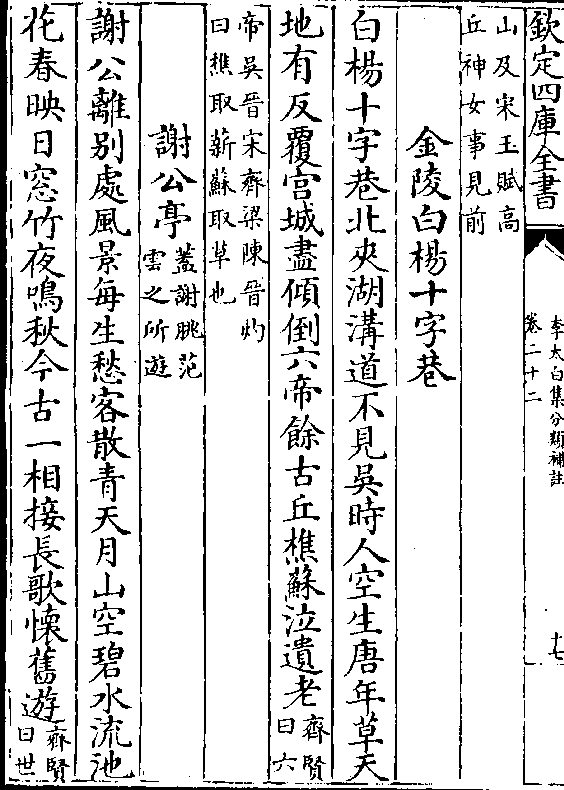 欽定四庫全書
李太白集分類補註
卷二十二
十七
山及宋玉賦高
丘神女事見前
金陵白楊十字巷
白楊十字巷北夾湖溝道不見吳時人空生唐年草天
地有反覆宫城盡傾倒六帝餘古丘樵蘇泣遺老
齊賢
曰六
帝吳晉宋齊梁陳晉灼
曰樵取薪蘇取草也
謝公亭
蓋謝朓范
雲之所遊
謝公離别處風景每生愁客散青天月山空碧水流池
花春映日窓竹夜鳴秋今古一相接長歌懷舊遊
齊賢
曰世